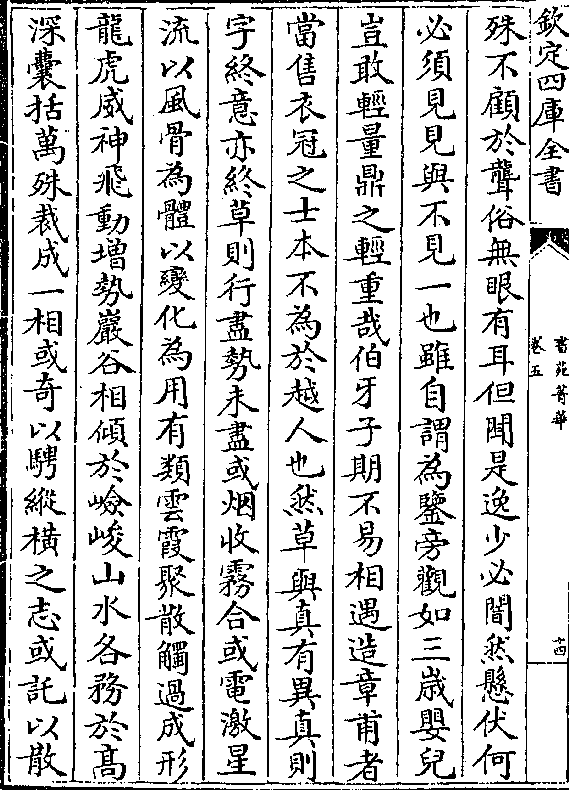 欽定四庫全書
書苑菁華
卷五
十四
殊不顧於聾俗無眼有耳但聞是逸少必闇然懸伏何
必須見見與不見一也雖自謂為鑒旁觀如三歲嬰兒
豈敢輕量鼎之輕重哉伯牙子期不易相遇造章甫者
當售衣冠之士本不為於越人也然草與真有異真則
字終意亦終草則行盡勢未盡或烟收霧合或電激星
流以風骨為體以變化為用有類雲霞聚散觸遇成形
龍虎威神飛動增勢巖谷相傾於嶮峻山水各務於高
深囊括萬殊裁成一相或寄以騁縱橫之志或託以散